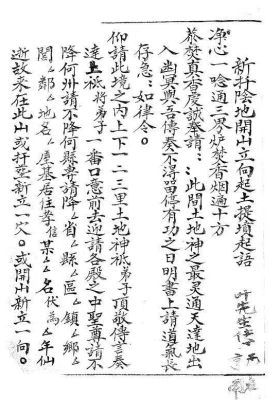 新扦陰地開山立向起土提墳起語
净心一唸通三界炉焚香烟遍十方
恭焚真香虔誠奉請：：此間土地神之最灵通天達地出
入幽冥與吾傳奏不得畄停有功之日明書上請道氣長
存急：如律令。
仰請此境之內上下一二三里土地神祇弟子頂敬傳言奏
達土祇將弟子一番口意前去迎請各殿之中聖尊請不
降何州請不降何縣專請降厶省厶縣厶區厶鎮厶鄉厶
閭厶鄰厶地名厶屋基居住孝信某厶厶名代為厶年仙
逝故来在此山或扦茔新立一穴。或開山新立一向。